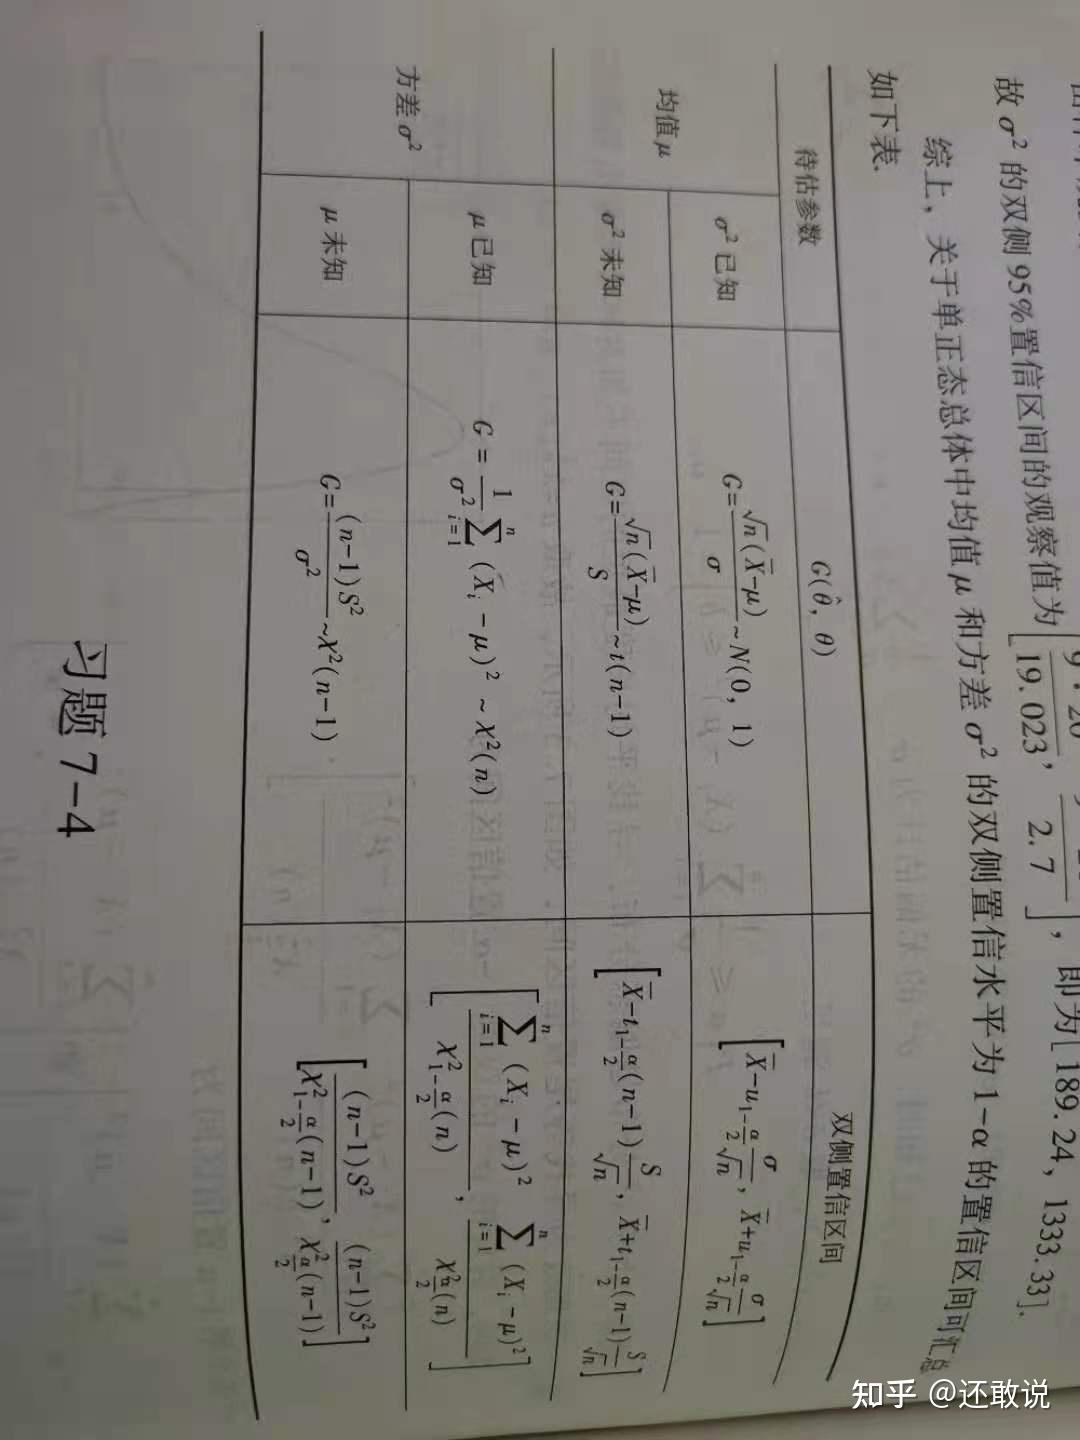 故 σ² 的双侧 95%置信区间的观察值为[9·20/19.023, /2.7], 即为[189.24, 1333.33].
综上, 关于单正态总体中均值 μ 和方差 σ² 的双侧置信水平为 1-α 的置信区间可汇总
如下表.
待估参数 G(θ̂, θ) 双侧置信区间
均值 μ
σ² 已知 G=√n(X̄-μ)/σ ~ N(0, 1) [X̄-u_{1-α/2} σ/√n, X̄+u_{1-α/2} σ/√n]
σ² 未知 G=√n(X̄-μ)/S ~ t(n-1) [X̄-t_{1-α/2}(n-1) S/√n, X̄+t_{1-α/2}(n-1) S/√n]
方差 σ²
μ 已知 G = 1/σ² ∑_{i=1}^{n} (X_i - μ)² ~ χ²(n) [∑_{i=1}^{n} (X_i - μ)²/χ²_{1-α/2}(n), ∑_{i=1}^{n} (X_i - μ)²/χ²_{α/2}(n)]
μ 未知 G=(n-1)S²/σ² ~ χ²(n-1) [(n-1)S²/χ²_{1-α/2}(n-1), (n-1)S²/χ²_{α/2}(n-1)]
习题 7-4
知乎 @还敢说